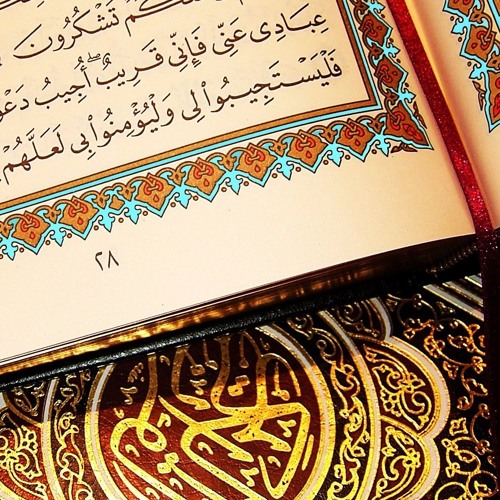 تَشْكُرُونَ
عِبَادِى عَنِّى فَإِنِّى قَرِيبٌ ۖ أُجِيبُ
فَلْيَسْتَجِيبُوا۟ لِى وَلْيُؤْمِنُوا۟ بِى لَعَلَّهُمْ
٢٨